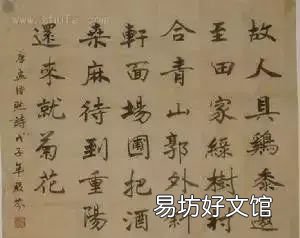 故人具鷄黍邀
至田家綠樹村
合青山郭外斜
軒面場圃把酒
桑麻待到重陽
還來就菊花
唐孟浩然詩戊子年
易坊好文馆